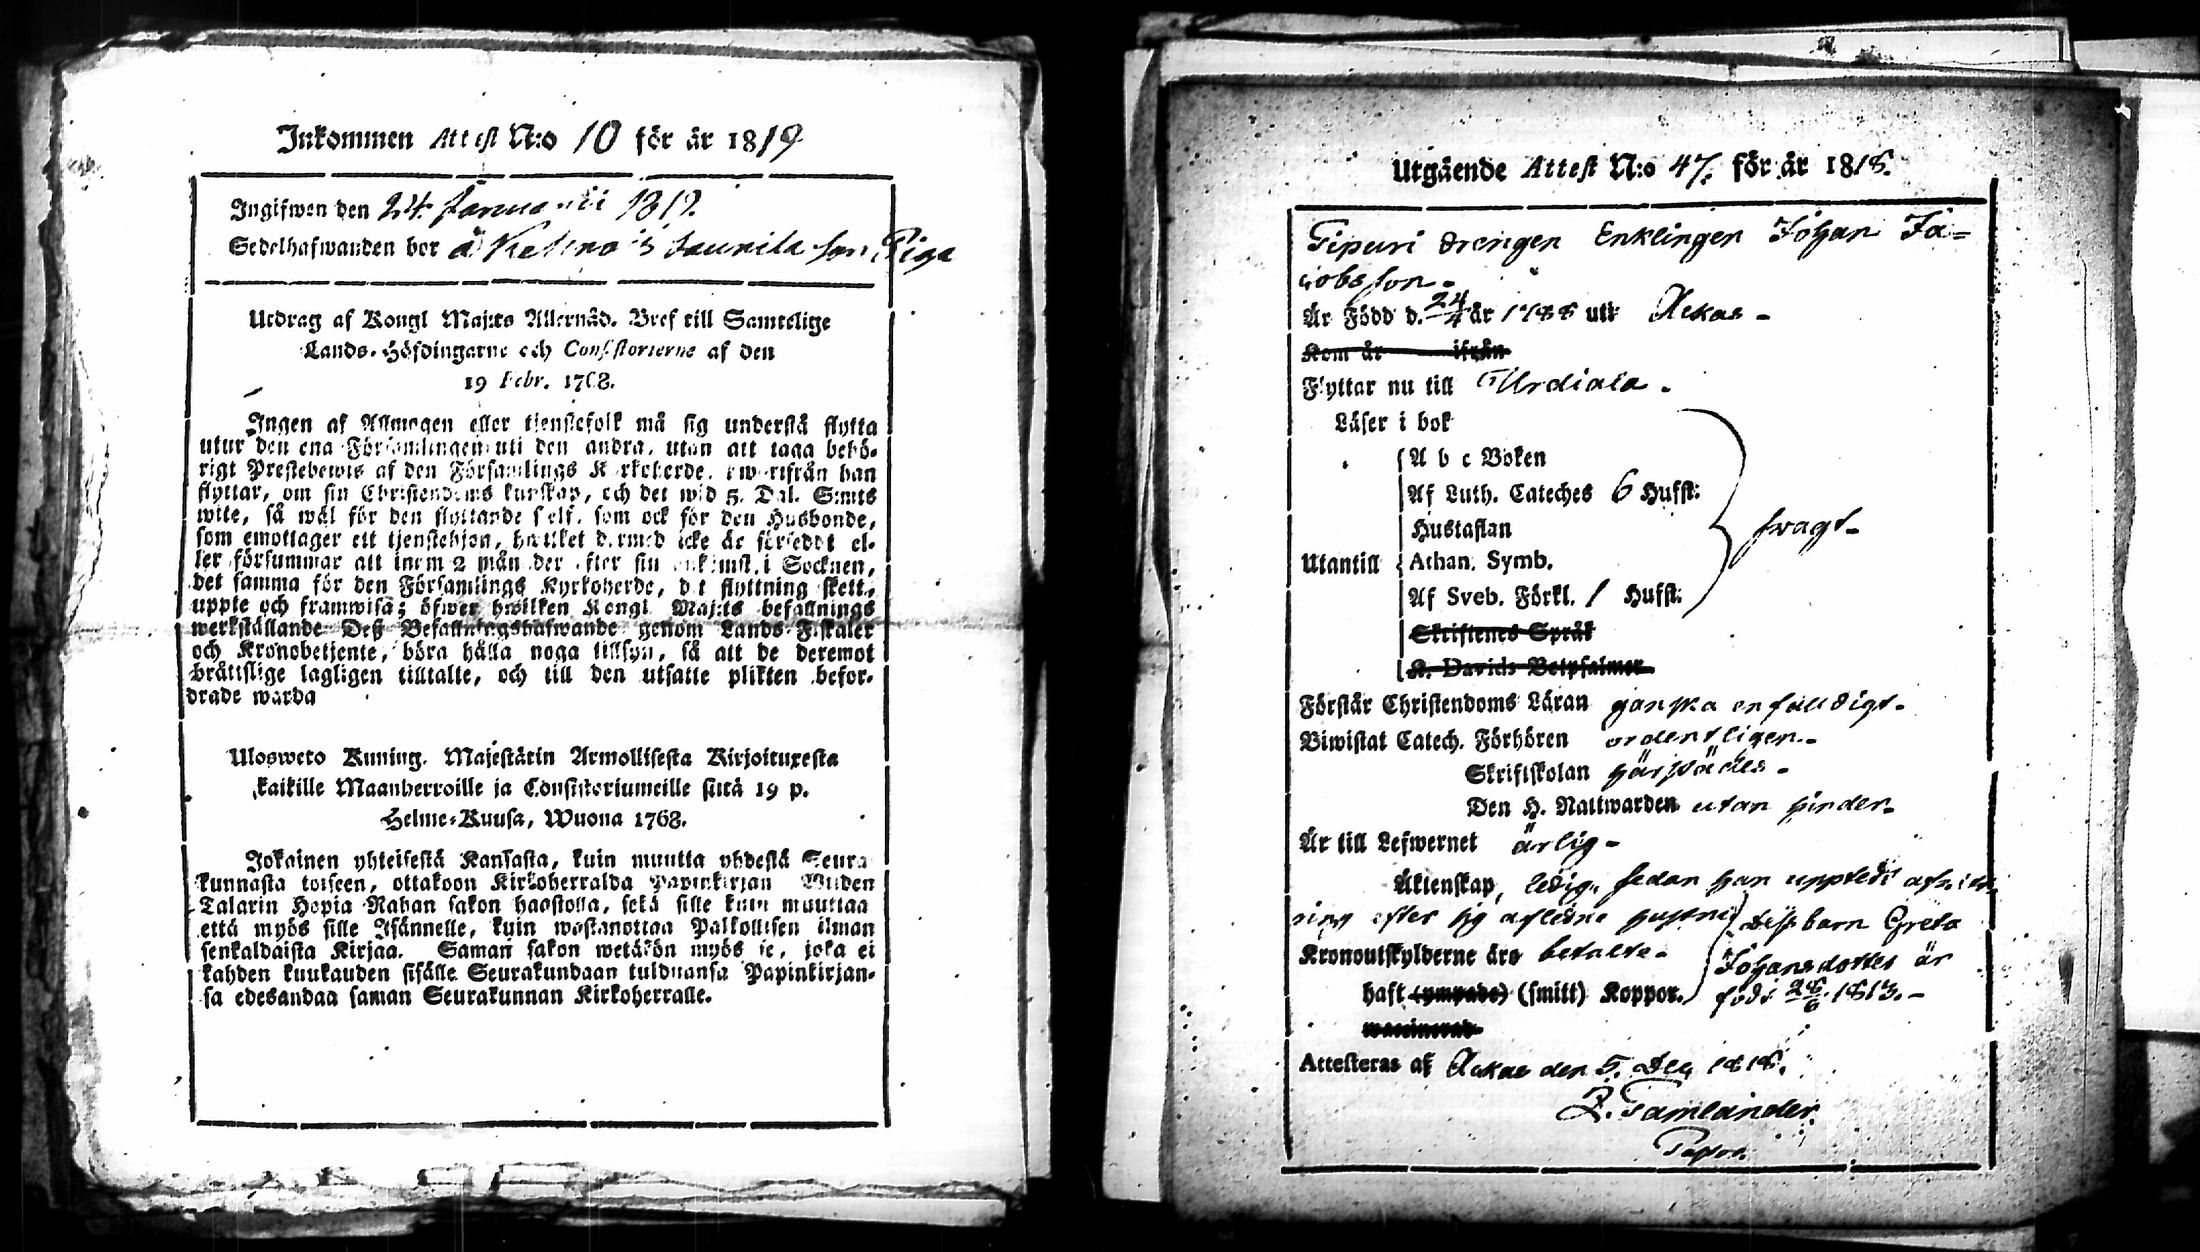 Inkommen Attest N:o 10 för år 1819
Ingifwen den 24 Januarii 1819.
Sedelhafwanden bor å
Piga
Utdrag af Kongl Maj:ts Allernåd. Bref till Samtelige
Lands-Höfdingarne och Consistorierne af den
19 Febr. 1768.
Ingen af Allmogen eller tjenstefolk må sig understå flytta
utur den ena Församlingen uti den andra, utan att taga behö-
rigt Prestebewis af den Församlings Kyrkoherde, hwarifrån han
flyttar, om sin Christendoms kunskap, och det wid 5. Dal. S:mts
wite, så wäl för den flyttande self, som ock för den Husbonde,
som emottager ett tjenstehjon, hwilket dermed icke är förseddt el-
ler försummar att inom 2 mån der efter sin ankomst i Socknen,
det samma för den Församlings Kyrkoherde, dit flyttning skett,
uppte och framwisa; öfwer hwilken Kongl Maj:ts befallnings
werkställande Deß Befallningshafwande genom Lands-Fiskaler
och Kronobetjente, böra hålla noga tillsyn, så att de deremot
bråttslige lagligen tilltalte, och till den utsatte plikten befor-
drade warda
Ulosweto Kuning. Majestätin Armollisesta Kirjoituxesta
kaikille Maanherroille ja Consistoriumeille siitä 19 p.
Helme-Kuusa, Wuona 1768.
Jokainen yhteisestä Kansasta, kuin muutta yhdestä Seura
kunnasta toiseen, ottakoon Kirkoherralda Papinkirjan Wiiden
Talarin Hopia Rahan sakon haastolla, sekä sille kuin muuttaa
että myös sille Isännelle, kuin wastanottaa Palkollisen ilman
senkaldaista Kirjaa. Saman sakon wetäkön myös se, joka ei
kahden kuukauden sisälle Seurakundaan tulduansa Papinkirjan-
sa edesandaa saman Seurakunnan Kirkoherralle.
Utgående Attest N:o 47. för år 1818.
Pipuri Drengen Enklingen Johan Ja=
cobsson.
År Född d. 24/4 år 1788 uti Ackas -
Kom år ifrån
Flyttar nu till Urdiala.
Läser i bok
A b c Boken
Af Luth. Cateches 6 Hufst:
Hustaflan
swagt-
Utantill Athan. Symb.
Af Sveb. Förkl. 1 Hufst:
Skriftenes Språk
K. Davids Botpsalmer
Förstår Christendoms Läran ganska enfalldigt.
Biwistat Catech. Förhören ordentligen.
Skriftskolan härstädes -
Den H. Nattwarden utan hinder.
Är till Lefwernet ärlig-
Äktenskap, ledig, sedan han
efter sig aflidne hustru Deß barn Greta
Kronoutskylderne äro betalte. Johansdotter är
haft (ympade) (smitt) Koppor. född 28/6 1813.-
waccinerad
Attesteras af Ackas den 5. Dec 1818.
Z. Tamlander
Pastor.